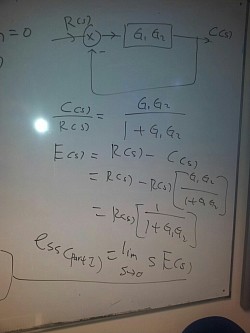 ) = 0
R(s) X - G₁G₂ C(s)
C(s)/R(s) = G₁G₂/1 + G₁G₂
E(s) = R(s) - C(s)
= R(s) - R(s) [G₁G₂/1+G₁G₂]
= R(s) [1/1+G₁G₂]
ess(part 2) = lim s→0 s E(s)